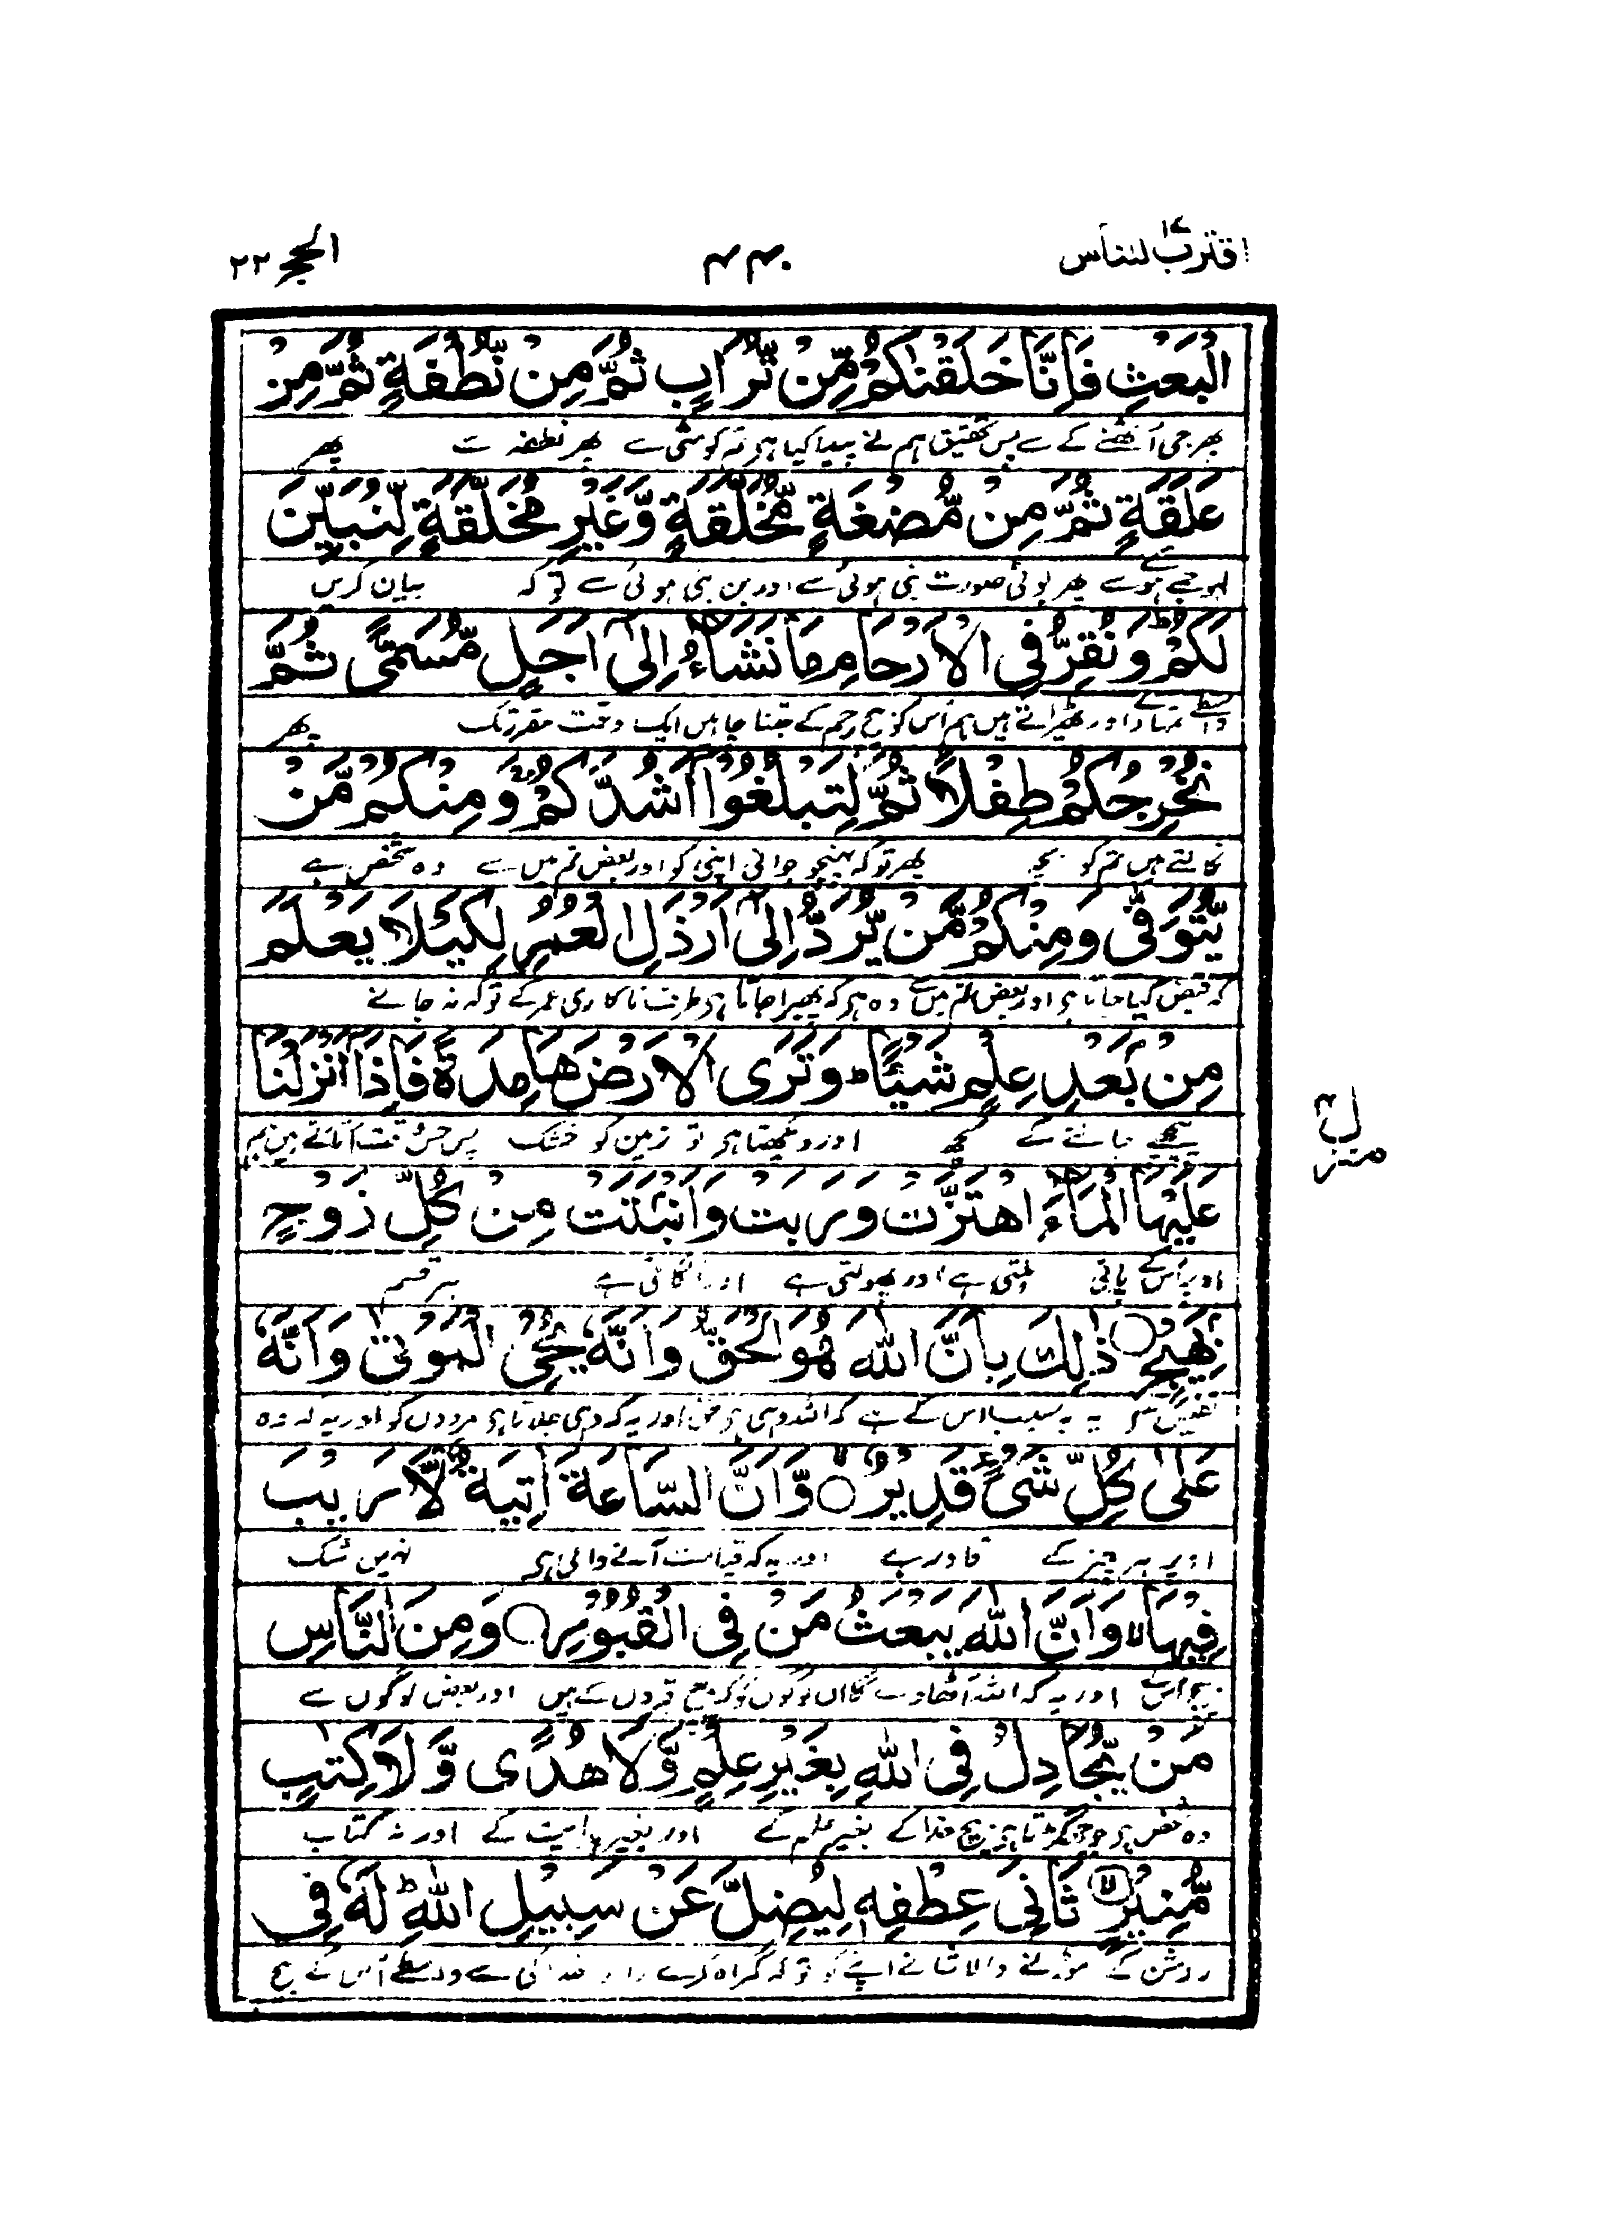 اقترب للناس ۱۷
۴۴۰
الحج ۲۲
الْبَعْثِ فَاِنَّا خَلَقْنٰكُمْ مِّنْ تُرَابٍ ثُمَّ مِنْ نُّطْفَةٍ ثُمَّ مِنْ
پھر جی اُٹھنے کے سے پس تحقیق ہم نے پیدا کیا ہی تم کو مٹی سے پھر نطفہ سے پھر
عَلَقَةٍ ثُمَّ مِنْ مُّضْغَةٍ مُّخَلَّقَةٍ وَّغَيْرِ مُخَلَّقَةٍ لِّنُبَيِّنَ
لہو جمے ہوے سے پھر بوٹی صورت بنی ہوئی سے اور بن بنی ہوئی سے تو کہ بیان کریں
لَكُمْ ؕ وَنُقِرُّ فِي الْاَرْحَامِ مَا نَشَآءُ اِلٰٓى اَجَلٍ مُّسَمًّى ثُمَّ
واسطے تمہارے اور ٹھیراتے ہیں ہم اُس کو بیچ رحم کے جتنا چاہیں ایک وقت مقرر تک پھر
نُخْرِجُكُمْ طِفْلًا ثُمَّ لِتَبْلُغُوْٓا اَشُدَّكُمْ ۚ وَمِنْكُمْ مَّنْ
نکالتے ہیں تم کو بچہ پھر تو کہ پہنچو جوانی اپنی کو اور بعض تم میں سے وہ شخص ہے
يُّتَوَفّٰى وَمِنْكُمْ مَّنْ يُّرَدُّ اِلٰٓى اَرْذَلِ الْعُمُرِ لِكَيْلَا يَعْلَمَ
کہ قبض کیا جاتا ہی اور بعض تم میں سے وہ ہی کہ پھیرا جاتا ہی طرف ناکاری عمر کے تو کہ نہ جانے
مِنْۢ بَعْدِ عِلْمٍ شَيْـًٔا ؕ وَتَرَى الْاَرْضَ هَامِدَةً فَاِذَآ اَنْزَلْنَا
پیچھے جاننے کے کچھ اور دیکھتا ہی تو زمین کو خشک پس جس وقت اتارتے ہیں ہم
عَلَيْهَا الْمَآءَ اهْتَزَّتْ وَرَبَتْ وَاَنْۢبَتَتْ مِنْ كُلِّ زَوْجٍۢ
اوپر اُس کے پانی ہلتی ہے اور پھولتی ہے اور اُگاتی ہے ہر قسم
بَهِيْجٍ ۝ ذٰلِكَ بِاَنَّ اللّٰهَ هُوَ الْحَقُّ وَاَنَّهٗ يُحْيِ الْمَوْتٰى وَاَنَّهٗ
نفیس سے یہ بسبب اس کے ہے کہ اللہ وہی ہی حق اور یہ کہ وہی جلاتا ہی مردوں کو اور یہ کہ وہ
عَلٰى كُلِّ شَيْءٍ قَدِيْرٌ ۝ وَّاَنَّ السَّاعَةَ اٰتِيَةٌ لَّا رَيْبَ
اوپر ہر چیز کے قادر ہے اور یہ کہ قیامت آنے والی ہی نہیں شک
فِيْهَا ۙ وَاَنَّ اللّٰهَ يَبْعَثُ مَنْ فِي الْقُبُوْرِ ۝ وَمِنَ النَّاسِ
بیچ اُس کے اور یہ کہ اللہ اٹھاوے گا اُن لوگوں کو کہ بیچ قبروں کے ہیں اور بعض لوگوں سے
مَنْ يُّجَادِلُ فِي اللّٰهِ بِغَيْرِ عِلْمٍ وَّلَا هُدًى وَّلَا كِتٰبٍ
وہ شخص ہی جو جھگڑتا ہی بیچ خدا کے بغیر علم کے اور بغیر ہدایت کے اور نہ کتاب
مُّنِيْرٍ ۙ ثَانِيَ عِطْفِهٖ لِيُضِلَّ عَنْ سَبِيْلِ اللّٰهِ ؕ لَهٗ فِي
روشن کے موڑنے والا شانے اپنے کو تو کہ گمراہ کرے راہ خدا کی سے واسطے اُس کے بیچ
منزل ۴